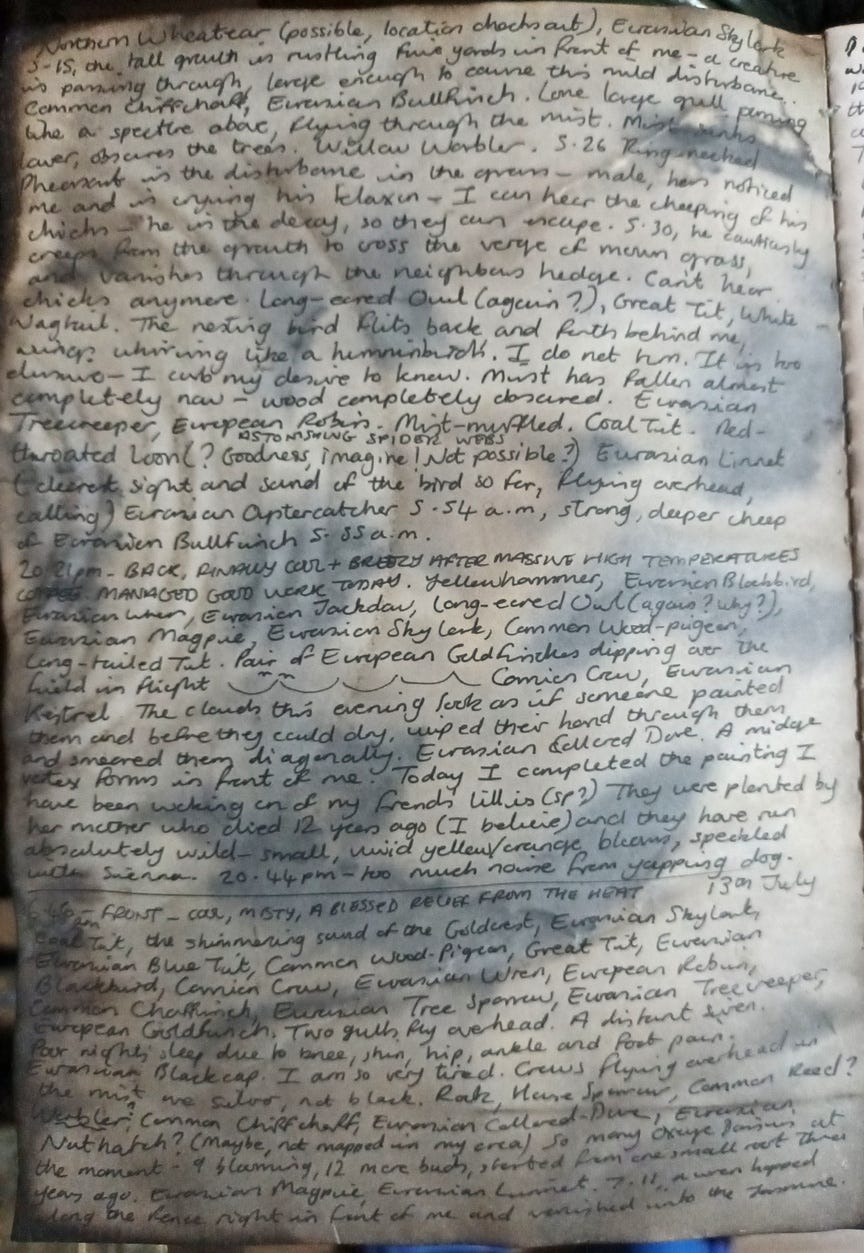 Northern Wheatear (possible, location checks out), Eurasian Skylark
5-15, the tall growth is rustling five yards in front of me - a creature
is passing through, large enough to cause this mild disturbance.
Common Chiffchaff, Eurasian Bullfinch. Lone large gull passing
like a spectre above, flying through the mist. Mist sinks
lower, obscures the trees. Willow Warbler. 5.26 Ring-necked
Pheasant is the disturbance in the grass - male, he's noticed
me and is crying his klaxon - I can hear the cheeping of his
chicks - he is the decoy, so they can escape. 5.30, he cautiously
creeps from the growth to cross the verge of mown grass,
and vanishes through the neighbours hedge. Can't hear
chicks anymore. Long-eared Owl (again?), Great Tit, White
Wagtail. The nesting bird flits back and forth behind me,
wings whirring like a humminbird. I do not turn. It is too
elusive - I curb my desire to know. Mist has fallen almost
completely now - wood completely obscured. Eurasian
Treecreeper, European Robin. Mist-muffled. Coal Tit. Red-
ASTONISHING SPIDER WEBS
throated Loon (? Goodness, imagine! Not possible?) Eurasian Linnet
(clearest sight and sound of the bird so far, flying overhead,
calling) Eurasian Oystercatcher 5.54 a.m, strong, deeper cheep
of Eurasian Bullfinch 5.55 a.m.
20.21pm - BACK, FINALLY COOL + BREEZY AFTER MASSIVE HIGH TEMPERATURES
MANAGED GOOD WORK TODAY. Yellowhammer, Eurasian Blackbird,
Eurasian Wren, Eurasian Jackdaw, Long-eared Owl (again? why?),
Eurasian Magpie, Eurasian Skylark, Common Wood-pigeon,
Long-tailed Tit. Pair of European Goldfinches dipping over the
field in flight Carrion Crow, Eurasian
Kestrel The clouds this evening look as if someone painted
them and before they could dry, wiped their hand through them
and smeared them diagonally. Eurasian Collared Dove. A midge
vortex forms in front of me. Today I completed the painting I
have been working on of my friends lillis (sp?) They were planted by
her mother who died 12 years ago (I believe) and they have run
absolutely wild - small, vivid yellow/orange blooms, speckled
with sienna. 20.44pm - too much noise from yapping dog.
13th July
am FRONT - COOL, MISTY, A BLESSED RELIEF FROM THE HEAT
Coal Tit, the shimmering sound of the Goldcrest, Eurasian Skylark,
Eurasian Blue Tit, Common Wood-Pigeon, Great Tit, Eurasian
Blackbird, Carrion Crow, Eurasian Wren, European Robin,
Common Chaffinch, Eurasian Tree Sparrow, Eurasian Treecreeper,
European Goldfinch. Two gulls fly overhead. A distant siren.
Poor nights sleep due to knee, shin, hip, ankle and foot pain.
Eurasian Blackcap. I am so very tired. Crows flying overhead in
the mist are silver, not black. Rook, House Sparrow, Common Reed?
Warbler? Common Chiffchaff, Eurasian Collared-Dove, Eurasian
Nuthatch? (Maybe, not mapped in my area) So many at
the moment - 9 blooming, 12 more buds, started from one small root three
years ago. Eurasian Magpie, Eurasian Linnet. 7.11, a wren hopped
along the fence right in front of me and vanished into the Jasmine.